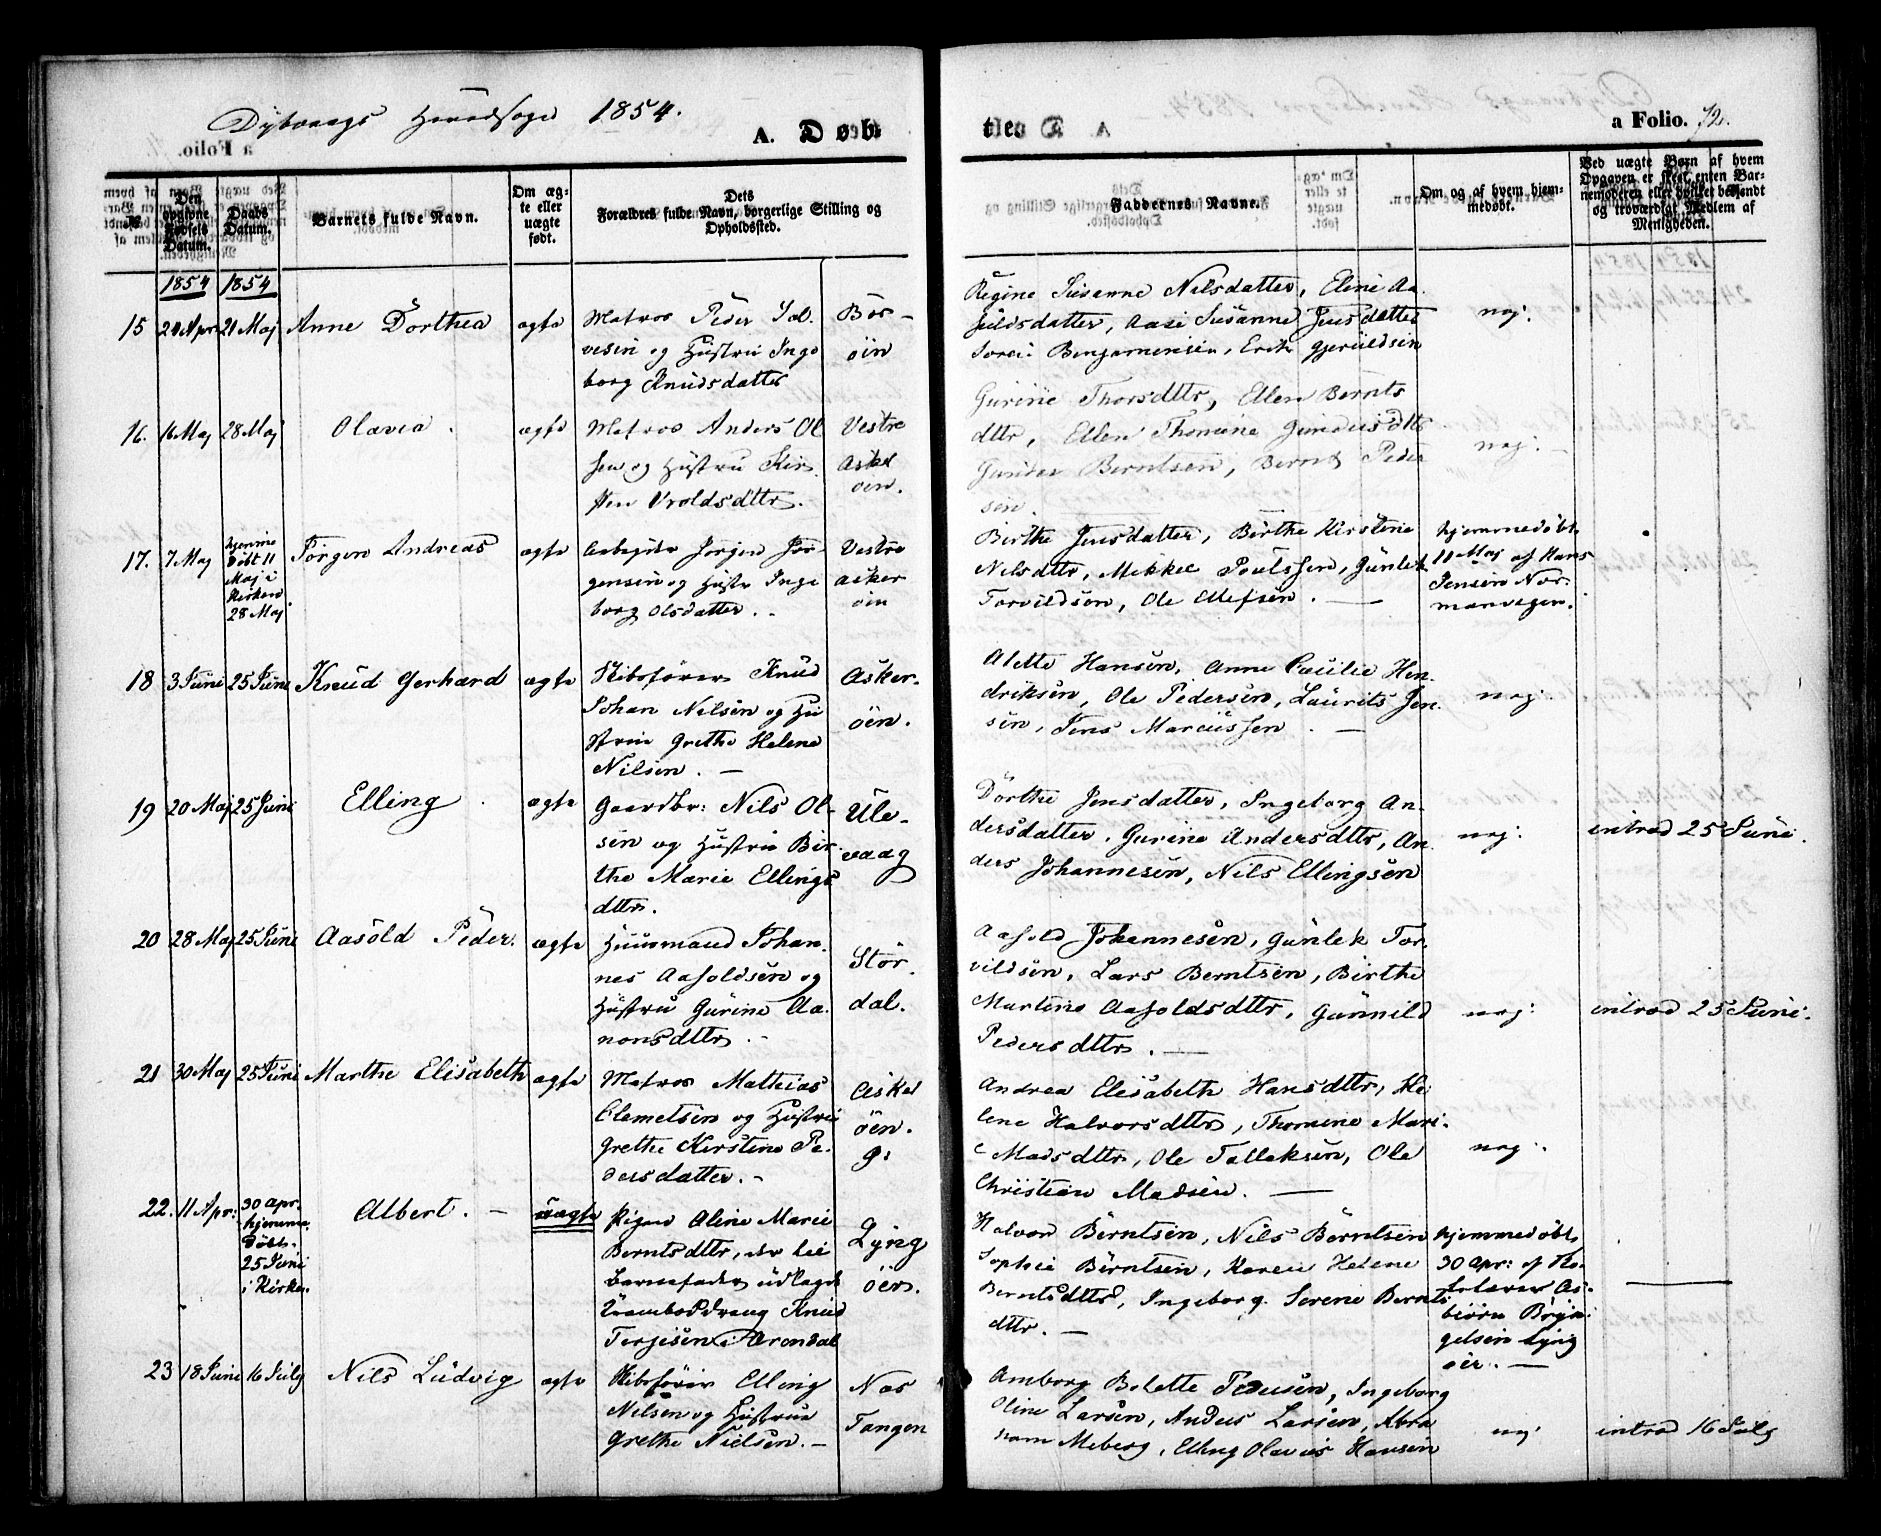 Dybvaags Hovedsogn 1854.
A. Døb
te.
a Folio. 72.
No.
Den opgivne Fødsels Datum.
Daabs Datum.
Barnets fulde Navn.
Om ægte eller uægte født.
Dets Forældres fulde Navn, borgerlige Stilling og Opholdssted.
Faddernes Navne.
Om og af hvem hjemmedøbt.
Ved uægte Børn af hvem Opgaven er skeet, enten Barnemoderen eller hvilket bekjendt og troværdigt Medlem af Menigheden.
1854 1854
15 21 Maj Anne Dorthea ægte
Matros Peder Sal-
vesen og Hustru Inge
borg Knudsdatter
Bor-
øen
Regine Susanne Nilsdatter, Eline Aa-
suldsdatter, Aase Susanne Jensdatter
Benjaminsen, Erik Gjeruldsen
nej.
16. 16 Maj 28 Maj Olavia. ægte
Matros Anders Ol
sen og Hustru Kir
sten Vroldsdttr.
Vestre
Asker
øen.
Gurine Thorsdttr, Ellen Bernts
dttr, Ellen Thomine Gundersdttr
Gunder Berntsen, Bernt Peder
sen.
nej.
17. 7 Maj hjemme
døbt 11
Maj i
Kirken
28 Maj
Jørgen Andreas ægte
Arbejder Jørgen Jør-
gensen og Hustr Inge
borg Olsdatter.
Vestre
Asker
øen
Birthe Jensdatter, Birthe Kirstine
Nilsdttr, Mikkel Poulssen, Gunlek
Torvildsen, Ole Ellefsen.
hjemmedøbt
11 Maj af Hans
Jensen Nor-
manvigen.
18 3 Juni 25 Juni Knud Gerhard ægte
Skibsfører Knud
Johan Nelsen og Hu
stru Grethe Helene
Nilsen. -
Asker-
øen.
Alette Hansen, Anne Cecilie Hen-
driksen, Ole Pedersen, Laurits Jen-
sen, Jens Marcussen
nej.
19 20 Maj 25 Juni Elling. ægte
Gaardbr: Nils Ol-
sen og Hustru Bir-
the Marie Ellings
dttr.
Ule-
vaag
Dorthe Jensdatter, Ingeborg An-
dersdatter, Gurine Andersdttr, An-
ders Johannesen, Nils Ellingsen
nej.
introd 25 Juni.
20 28 Maj 25 Juni Aasold Peder. ægte
Huusmand Johan-
nes Aasoldsen og
Hustru Gurine Aa-
nonsdttr. -
Stor
dal.
Aasold Johannesen, Gunlek Tor-
vildsen, Lars Berntsen, Birthe
Martine Aasoldsdttr, Gunnild
Pedersdttr.
nej:
introd 25 Juni.
21 30 Maj 25 Juni Marthe Elisabeth ægte
Matros Mathias
Clemetsen og Hustru
Grethe Kirstine Pe-
dersdatter. -
Asker
øen.
Andrea Elisabeth Hansdttr, He
lene Halvorsdttr, Thomine Mari-
e Madsdttr, Ole Tallaksen, Ole
Christian Madsen.
nej.
22. 11 Apr: 30 Apr.
hjemme
døbt.
25 Juni
i Kirken
Albert. - uægte
Pigen Aline Marie
Berntsdttr, der til
Barnefader udlagde
Knud
Terjesen i Arendal
Lyng
øer.
Halvor Berntsen, Nils Berntsen
Sophie Berntsen, Karen Helene
Berntsdttr, Ingeborg Serene Bernts
dttr. -
hjemmedøbt
30 Apr: af
As-
biørn Bryn-
gelsen Lyng
øer. -
23 18 Juni 16 July Nils Ludvig ægte
Skibsfører Elling
Nilsen og Hustrue
Grethe Nielsen. -
Næs
Tangen
Amborg Bolette Pedersen, Ingeborg
Oline Larsen, Anders Larsen, Abra
ham Meberg, Elling Olaves Hansen
nej
introd 16 July